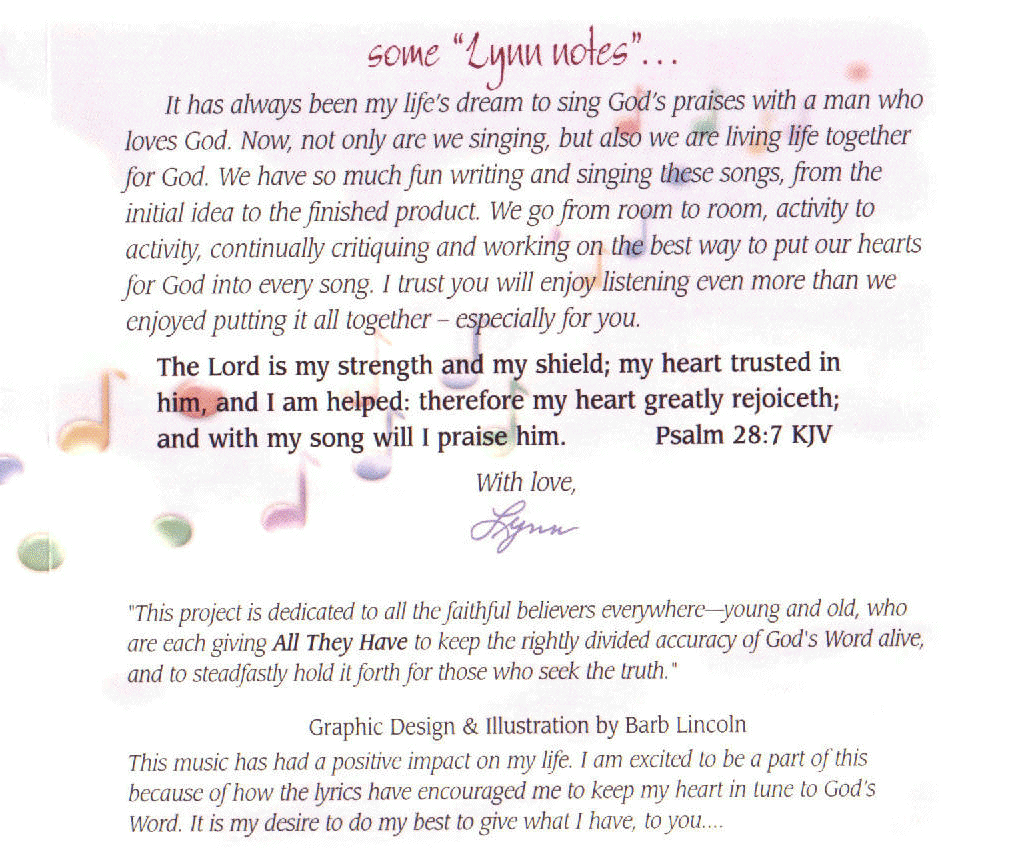 some “Lynn notes”...
It has always been my life's dream to sing God's praises with a man who
loves God. Now, not only are we singing, but also we are living life together
for God. We have so much fun writing and singing these songs, from the
initial idea to the finished product. We go from room to room, activity to
activity, continually critiquing and working on the best way to put our hearts
for God into every song. I trust you will enjoy listening even more than we
enjoyed putting it all together – especially for you.
The Lord is my strength and my shield; my heart trusted in
him, and I am helped: therefore my heart greatly rejoiceth;
and with my song will I praise him. Psalm 28:7 KJV
With love,
Lynn
"This project is dedicated to all the faithful believers everywhere—young and old, who
are each giving All They Have to keep the rightly divided accuracy of God's Word alive,
and to steadfastly hold it forth for those who seek the truth."
Graphic Design & Illustration by Barb Lincoln
This music has had a positive impact on my life. I am excited to be a part of this
because of how the lyrics have encouraged me to keep my heart in tune to God's
Word. It is my desire to do my best to give what I have, to you....